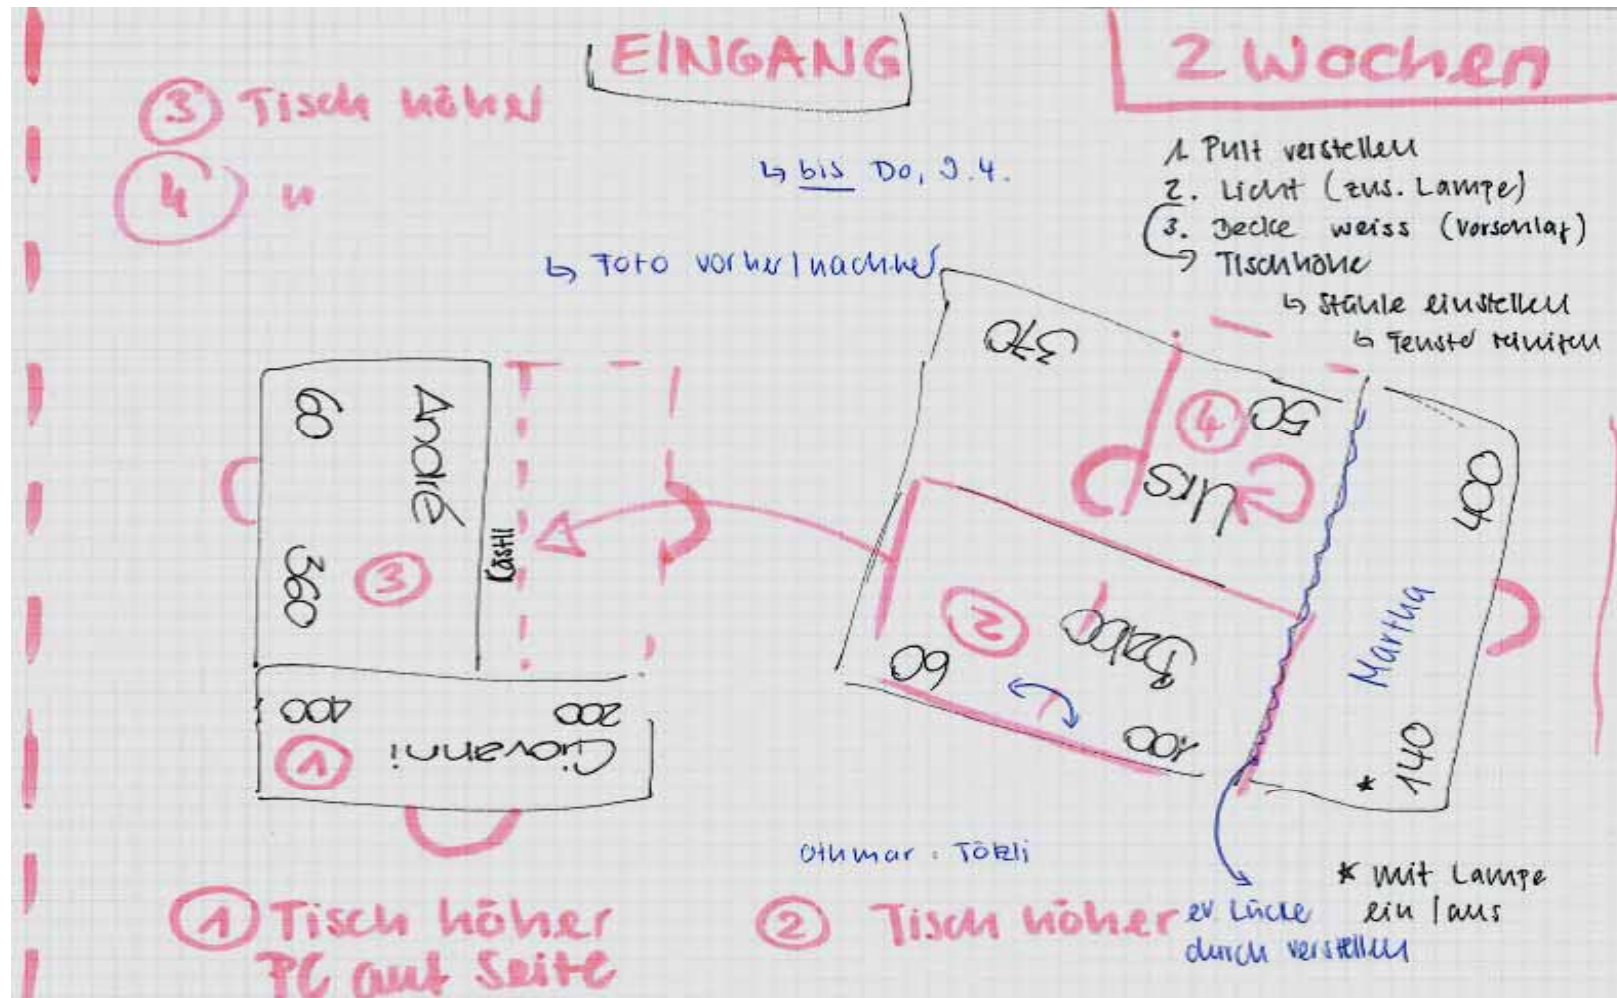 EINGANG
2 Wochen
③ Tisch höher
④ "
↳ bis Do, 9.4.
↳ Foto vorher/nachher
1. Pult verstellen
2. Licht (zus. Lampe)
3. Decke weiss (Vorschlag)
→ Tischhöhe
↳ Stühle einstellen
↳ Fenster reinigen
60
André
360
③
Kästli
400
200
① Giovanni
370
④
50
Urs
②
Babo
60
100
400
Martha
* 140
Othmar:
① Tisch höher
PC auf Seite
② Tisch höher
ev Lücke
durch verstellen
* mit Lampe
ein/aus